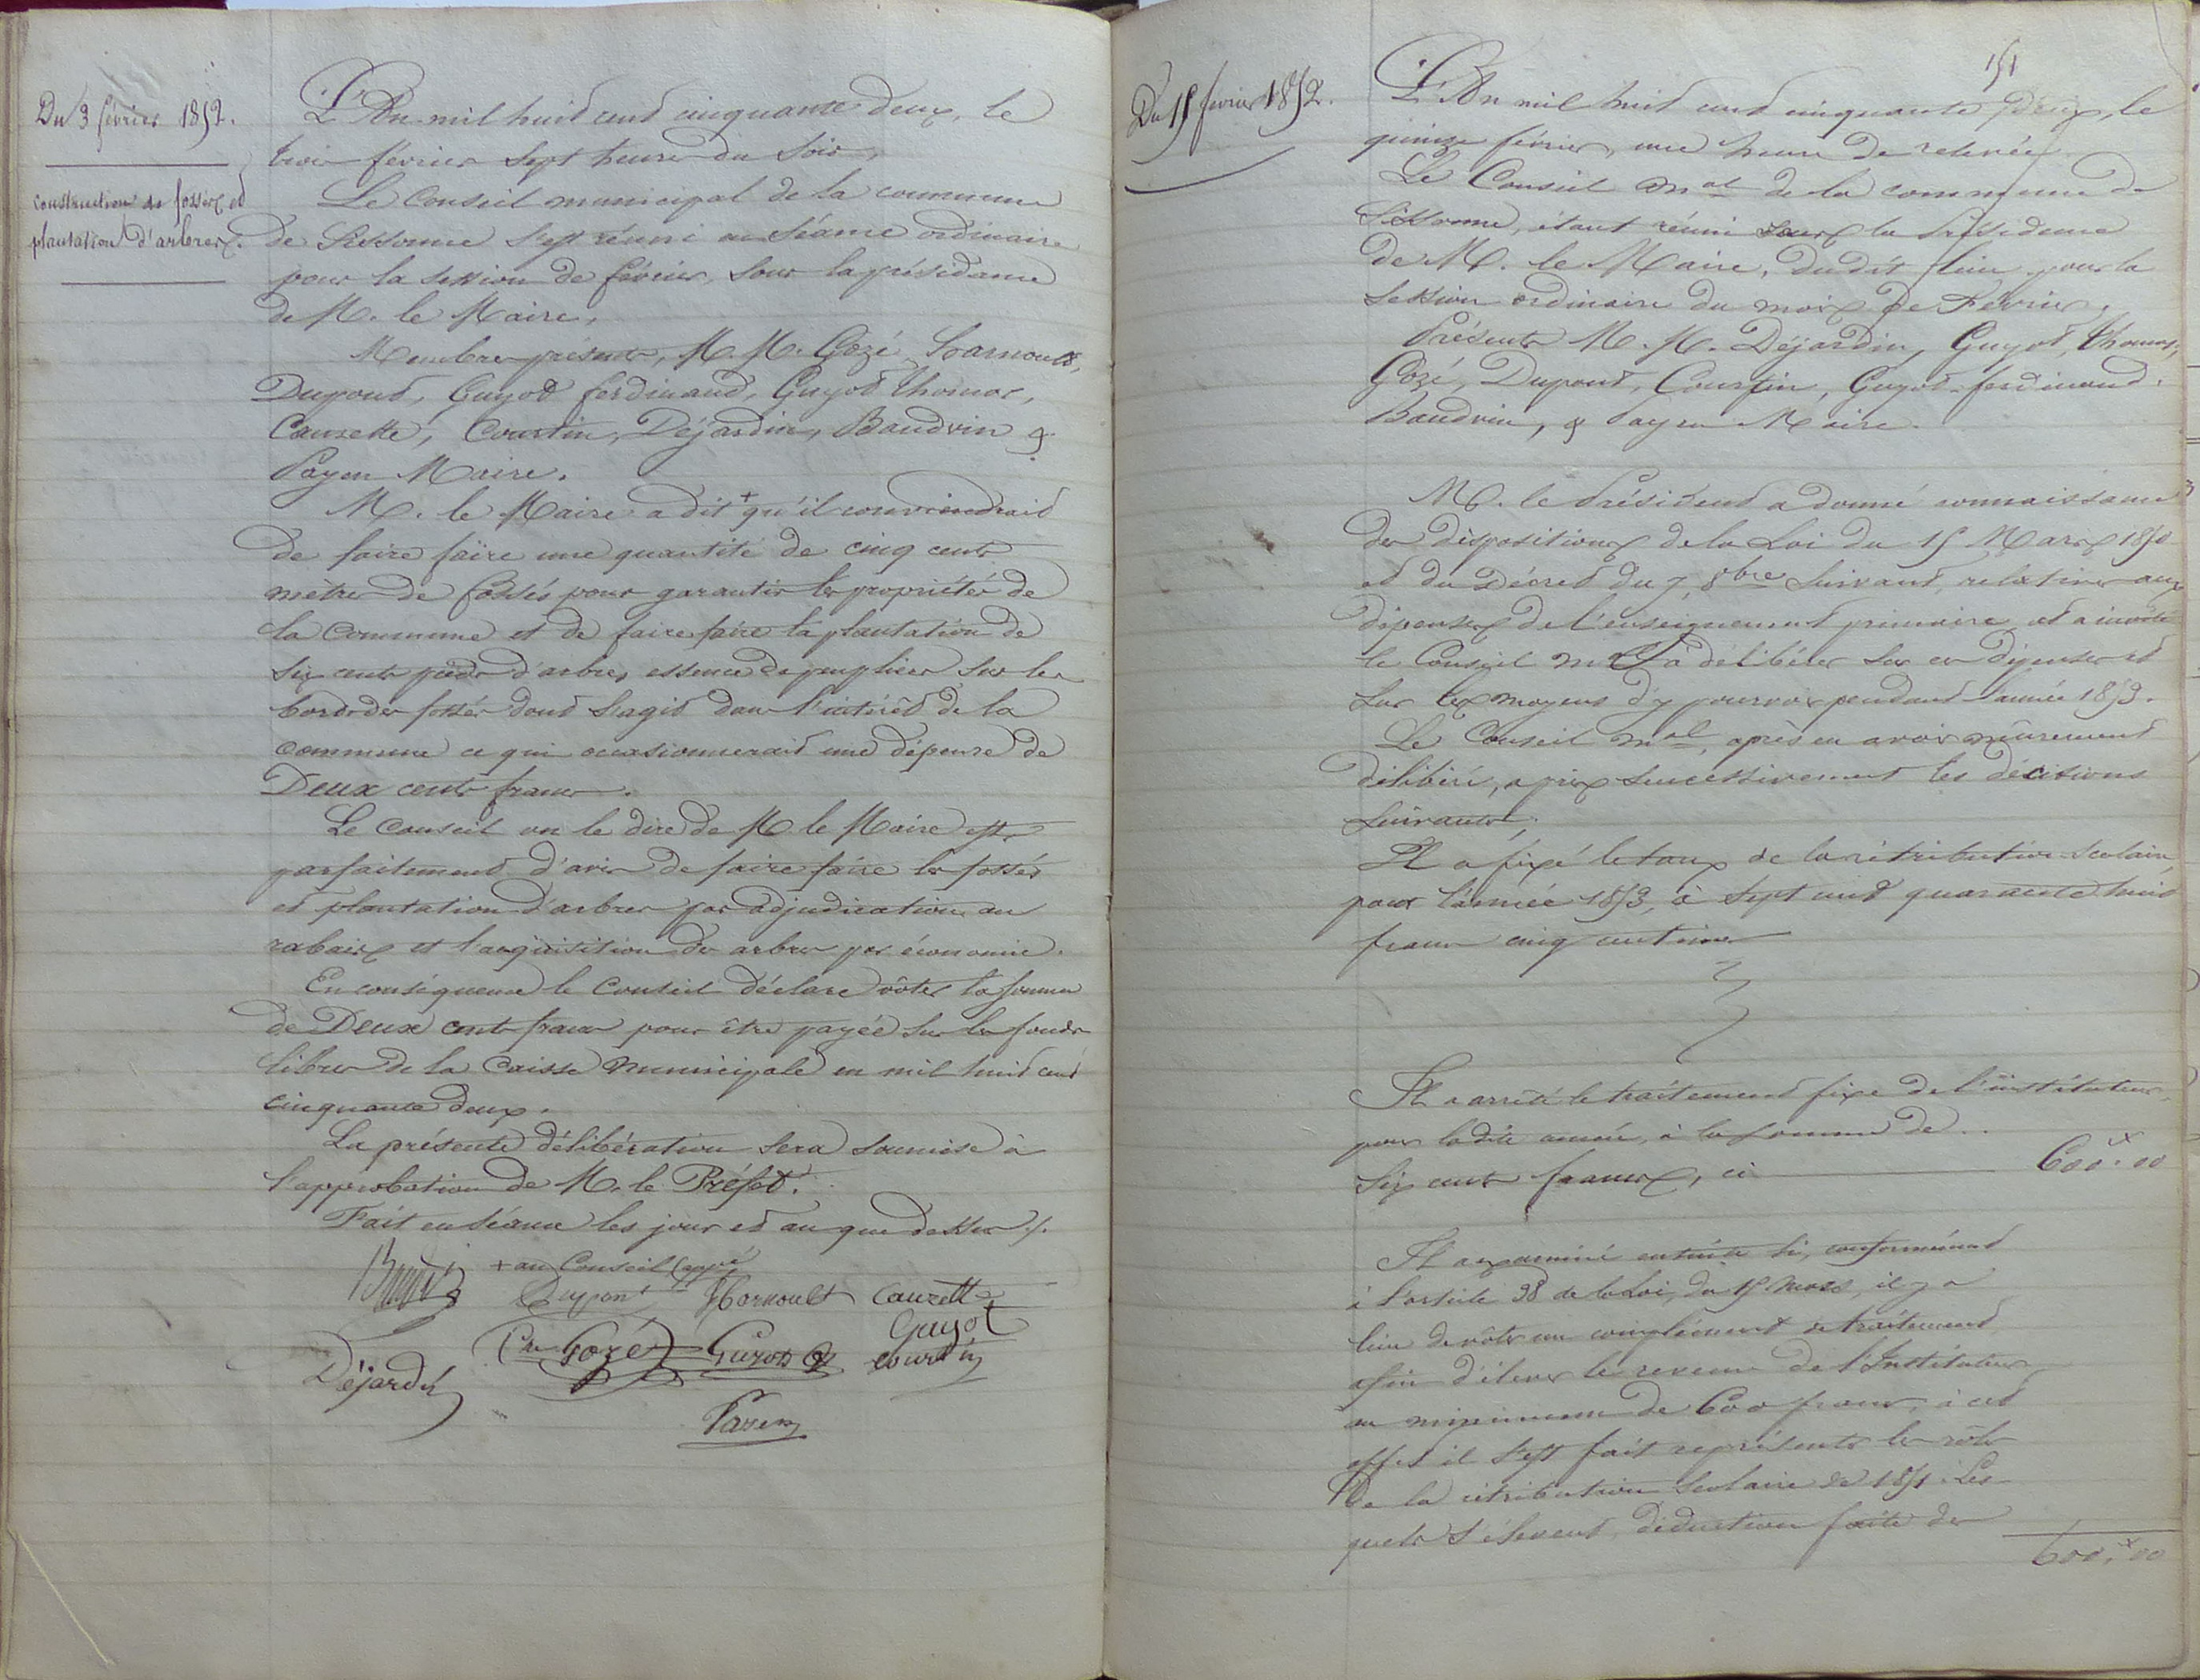 Du 3 février 1852.
construction de fossés et
plantation d'arbres.
L'An mil huit cent cinquante deux, le
trois février sept heures du soir,
Le Conseil municipal de la commune
de Sissonne s'est réuni en séance ordinaire
pour la session de février, sous la présidence
de M. le Maire,
Membres présents, M. M. Gozé, Harnoult,
Dupont, Guyot ferdinand, Guyot thomas,
Cauzette, Courtin, Déjardin, Baudvin &
Payen Maire.
M. le Maire a dit + qu'il conviendrait
de faire faire une quantité de cinq cents
mètres de fossés pour garantir les propriétés de
la Commune et de faire faire la plantation de
six cents pieds d'arbres, essence de peupliers sur les
bords des fossés dont s'agit dans l'intérêt de la
Commune ce qui occasionnerait une dépense de
Deux cents francs.
Le Conseil vu le dire de M. le Maire est
parfaitement d'avis de faire faire les fossés
et plantation d'arbres par adjudication au
rabais et l'acquisition des arbres par économie.
En conséquence le Conseil déclare voter la somme
de Deux cents francs pour être payée sur les fonds
libres de la Caisse Municipale en mil huit cent
cinquante deux.
La présente délibération sera soumise à
l'approbation de M. le Préfet.
Fait en séance les jour et an que dessus ./.
+ au Conseil appé
Dupont Harnoult Cauzette
Guyot
Déjardin Gozé Guyot courtin
Payen
151
Du 15 février 1852.
L'An mil huit cent cinquante Deux, le
quinze février, une heure de relevée
Le Conseil mal de la commune de
Sissonne, étant réuni sous la Présidence
de M. le Maire, dudit lieu pour la
session ordinaire du mois de Février.
Présents M. M. Déjardin, Guyot, thomas,
Gozé, Dupont, Courtin, Guyot ferdinand,
Baudvin, & Payen Maire.
M. le Président a donné connaissance
des dispositions de la Loi du 15 Mars 1850
et du Décret du 7, 8bre suivant, relatives aux
dépenses de l'enseignement primaire et a invité
le Conseil mal à délibérer sur ces dépenses et
sur les moyens d'y pourvoir pendant l'année 1853.
Le Conseil mal, après en avoir mûrement
délibéré, a pris successivement les décisions
suivantes;
Il a fixé le taux de la rétribution scolaire
pour l'année 1853, à sept cent quarante huit
francs cinq centimes
Il a arrêté le traitement fixe de l'instituteur,
pour ladite année, à la somme de..
Six cents francs, ci 600.00
Il a examiné ensuite si, conformément
à l'article 38 de la Loi, du 15 mars, il y a
lieu de voter un complément de traitement
afin d'élever le revenu de l'Instituteur
au minimum de 600 francs, à cet
effet il s'est fait représenter les rôles
de la rétribution scolaire de 1851. Les-
quels s'élèvent, déduction faite des
600,00